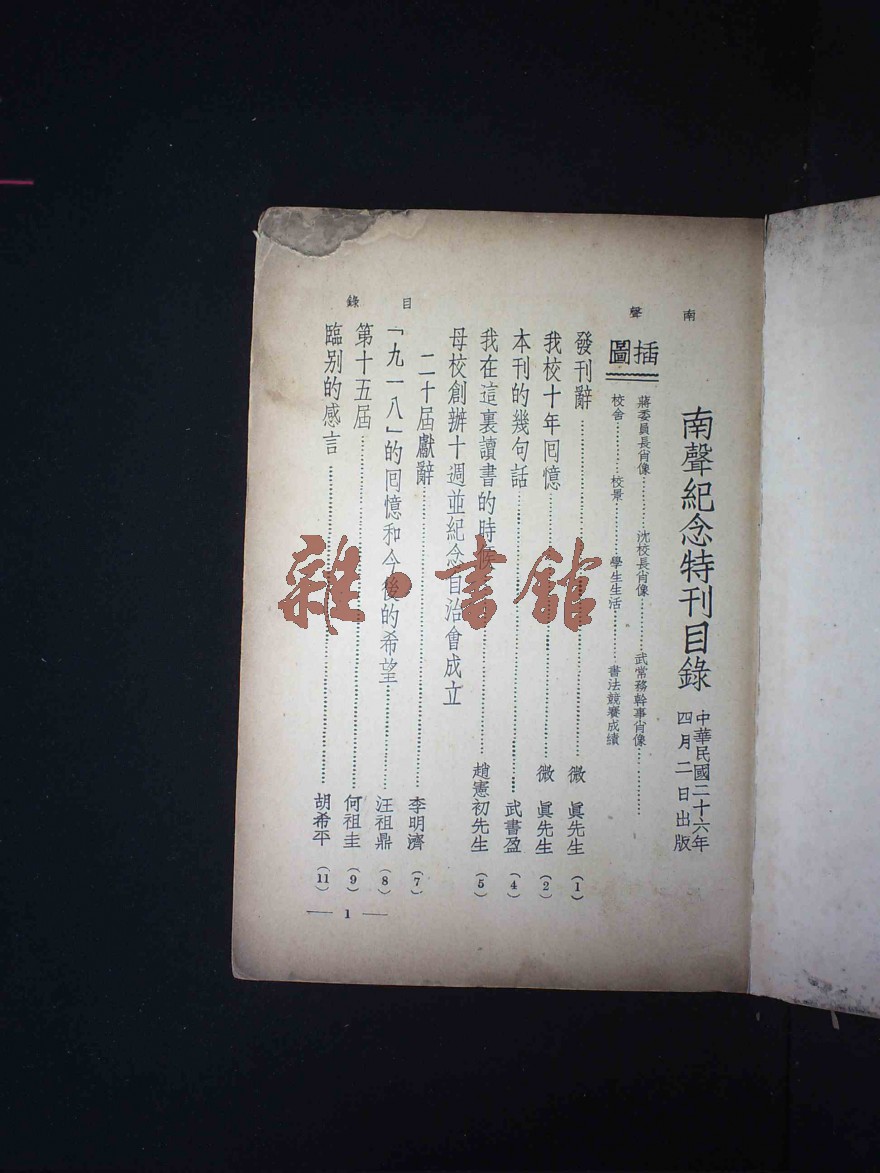 南聲
目錄
南聲紀念特刊目錄
中華民國二十六年
四月二日出版
插圖
蔣委員長肖像…………沈校長肖像…………武常務幹事肖像…………
校舍…………校景…………學生生活…………書法競賽成績
發刊辭…………微眞先生(1)
我校十年回憶…………微眞先生(2)
本刊的幾句話…………武書盈(4)
我在這裏讀書的時候…………趙憲初先生(5)
母校創辦十週並紀念自治會成立
二十屆獻辭…………李明濟(7)
「九一八」的回憶和今後的希望…………汪祖鼎(8)
第十五屆…………何祖圭(9)
臨別的感言…………胡希平(11)
— 1 —
雜·書館